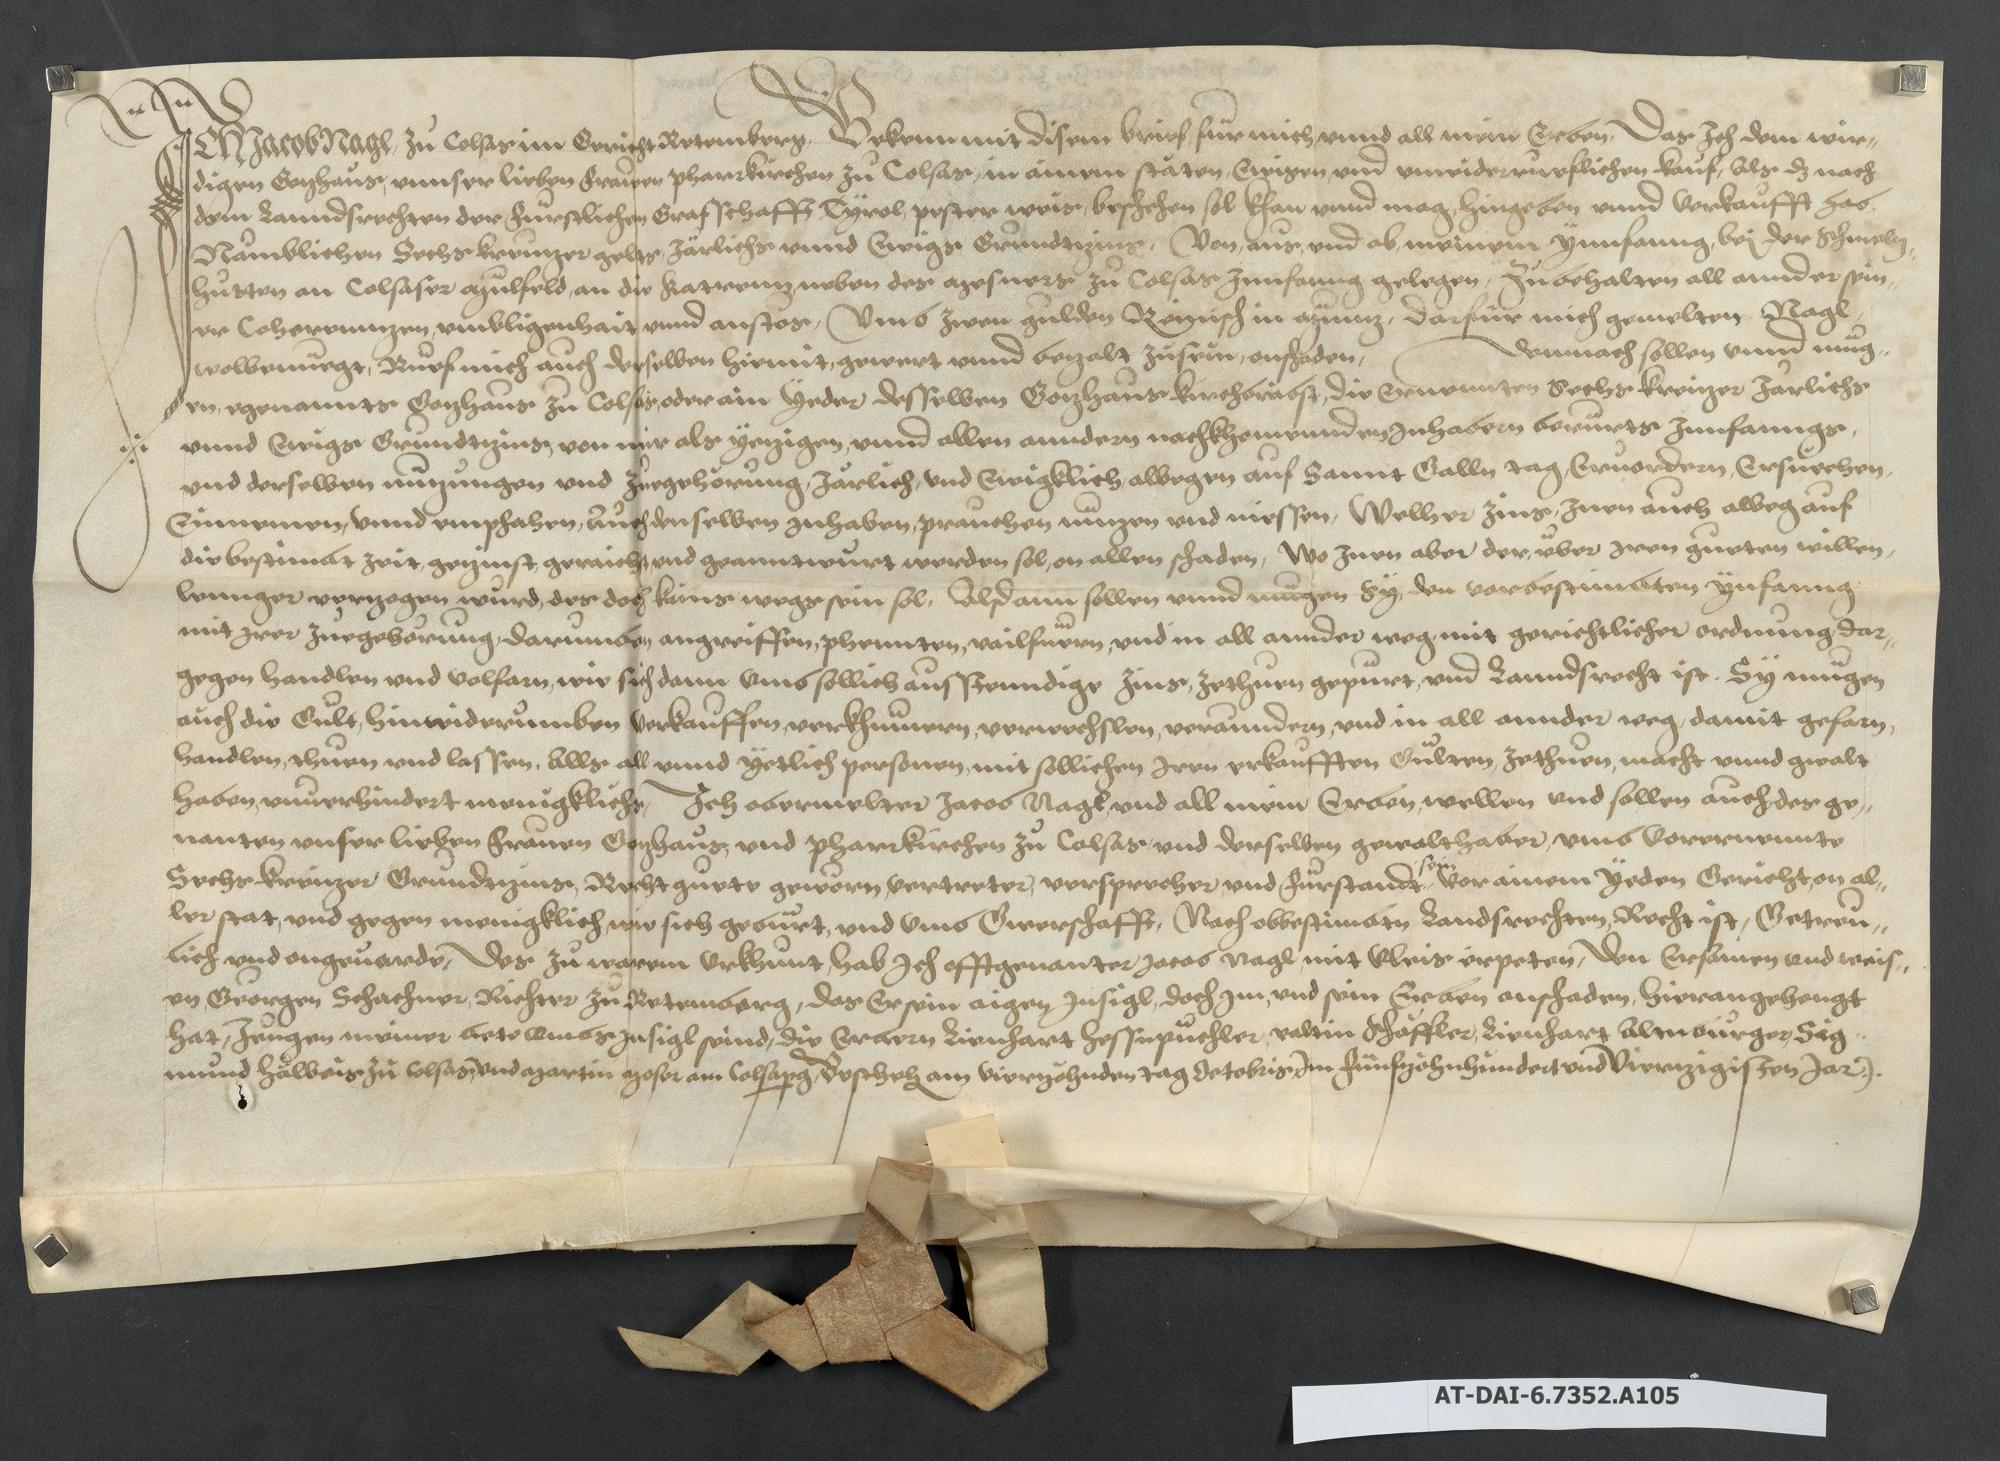 Ich Jacob Nagl, zu Colsas im Gericht Retemberg, Bekenn mit disem brief, für mich vnnd all mein Erben, Das Ich dem wir-
digen Gotzhaus, vnnser lieben Frawen pharrkirchen zu Colsas, in ainem stäten, Ewigen, vnd vnwiderrueflichen kauf, Als dz nach
dem Lanndsrechten der Fürstlichen Grafschafft Tyrol, pester weis, beschehen sol khan vnnd mag, hingeben vnnd verkaufft hab.
Nämblichen Sechs kreutzer gelts, Järlichs vnnd Ewigs Grundtzins, Von, aus, vnd ab, meinem Ynnfanng, bej der Schmeltz-
hütten an Colsaser Mülfeld, an die neben des Mesners zu Colsas Innfanng gelegen, Zubehalten all annder sein-
er Coherenntzen, vmbligenhait vnnd anstös, Vmb zwen gulden Reinisch in Müntz, darfür mich gemelten Nagl,
wolbenüegt, Ruef mich auch derselben hiemit, gewert vnnd betzalt zusein, onschaden, Demnach sollen vnnd müg-
en, egenannts Gotzhaus zu Colsas, oder ain Yeder desselben Gotzhaus kirchbrabst, die Ernennten Sechs kreitzer Järlichs
vnnd Ewigs Grundtzins, von mir als Yetzigen, vnnd allen anndern nachkhomennden Inhabern berüerts Innfanngs,
vnd derselben nutzungen vnd zuegehörung, Järlich, vnd Ewigklich, albegen auf Sannt Galln tag, Eruordern, Ersuechen,
Einnemen, vnnd emphahen, Auch denselben Inhaben, prauchen nützen vnd niessen, Welher Zins, Inen auch albeg auf
die bestimbt zeit, getzinst geraicht vnd geanntwurt werden sol, on allen schaden, Wo Inen aber der, vber Iren gueten willen,
lennger vertzogen wurd, des doch kains wegs sein sol, Alsdann sollen vnnd mügen Sy, den vorbestimbten Ynfanng
mit Irer Zuegehörung, darumben angreiffen, phennten, vailfüern, vnd in all annder weg, mit gerichtlicher ordnung dar-
gegen handlen vnd volfarn, wie sich dann vmb sollich ausstenndige Zins, zethuen gepürt, vnd Lanndsrecht ist. Sy mügen
auch die Gült, hinwiderumben verkauffen, verkhümern, verwechslen, verändern, vnd in all annder weg, damit gefarn,
handlen, thuen vnd lassen, Alls all vnnd Yetlich personen, mit sollichen Iren erkaufften Gülten, zethuen, macht vnnd gwalt
haben, vnuerhindert menigklichs, Ich obermelter Jacob Nagl, vnd all mein Erben, wellen vnd sollen auch des ge-
nanten vnser lieben Frauen Gotzhaus, vnd pharrkirchen zu Colsas, vnd derselben gewalthaber, vmb vorernennte
Sechs kreitzer Grundtzins, Recht guete gewörn, vertreter, versprecher, vnd Fürstandt sein, Vor ainem Yeden Gericht, on al-
ler stat, vnd gegen menigklich, wie sich gebürt, vnd vmb Gwerschafft, Nach obbestimbtn Landsrechten, Recht ist, Getreu-
lich vnd ongeuärde, Des zu warem Vrkhunt, hab Ich offtgenanter Jacob Nagl, mit vleis erpeten, Den Ersamen vnd weis-
en, Georgen Schachner, Richter zu Retemberg, das Er sein aigen Insigl, doch Im, vnd sein Erben onschaden, hieran gehengt
hat, Zeugen meiner bete vmbs Insigl seind, die Erbern Lienhart Hessnpüchler, valtin Schäffler, Lienhart Altnburger, Sig-
mund Halbeis zu Colsas, vnd Martin Moser am Colsasperg, Beschehen am Viertzehnden tag Octobris, Im Funfftzehnhundert vnd Viertzigisten Jar.
AT-DAI-6.7352.A105